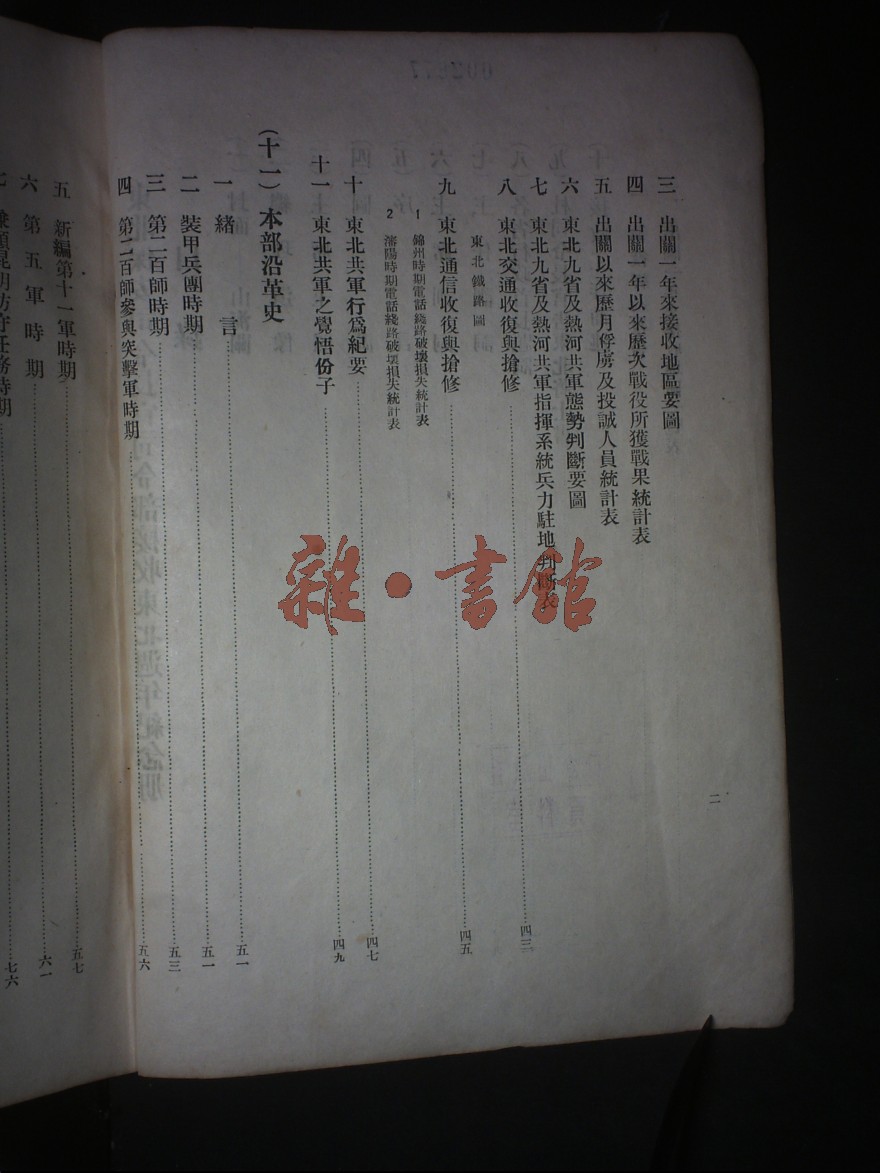 三　出關一年來接收地區要圖
四　出關一年以來歷次戰役所獲戰果統計表
五　出關以來歷月俘虜及投誠人員統計表
六　東北九省及熱河共軍態勢判斷要圖
七　東北九省及熱河共軍指揮系統兵力駐地判斷表
八　東北交通收復與搶修……四三
東北鐵路圖
九　東北通信收復與搶修……四五
1　錦州時期電話綫路破壞損失統計表
2　瀋陽時期電話綫路破壞損失統計表
十　東北共軍行爲紀要……四七
十一　東北共軍之覺悟份子……四九
(十一)　本部沿革史
一　緒　言……五一
二　裝甲兵團時期……五一
三　第二百師時期……五三
四　第二百師參與突擊軍時期……五六
五　新編第十一軍時期……五七
六　第五軍時期……六一
七　兼領昆明防守任務時期……七六
二
雜·書館